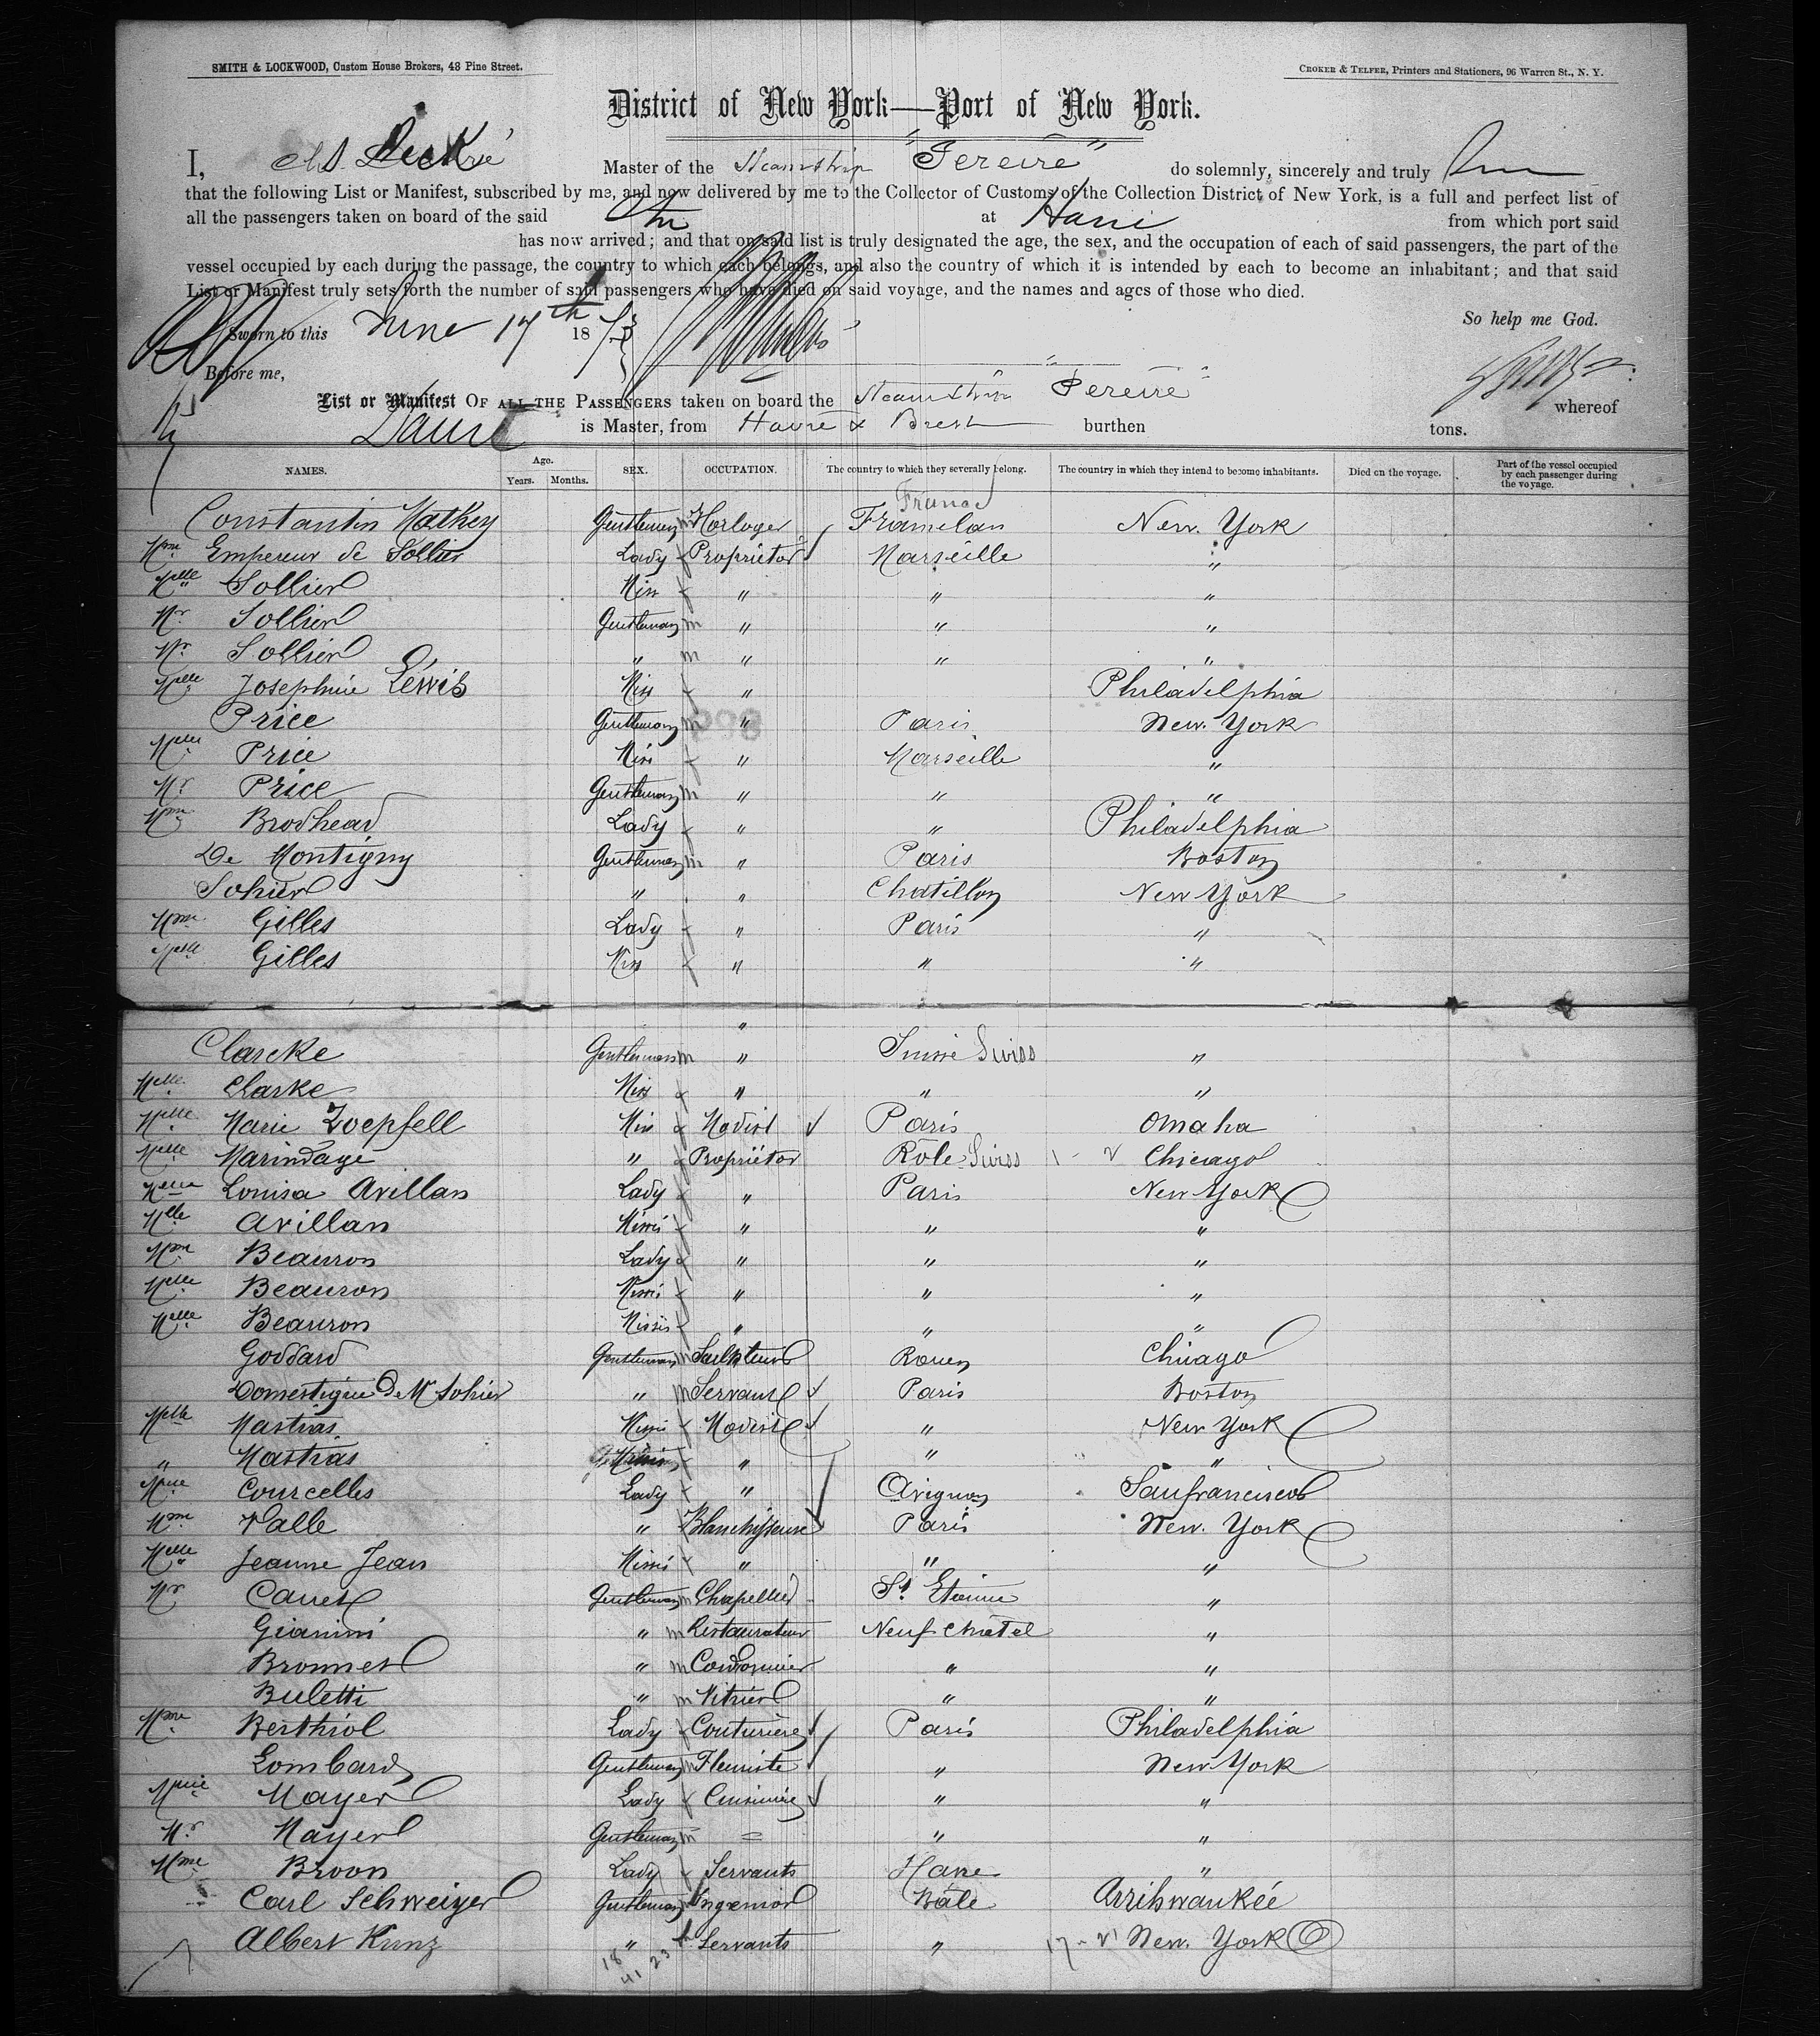 SMITH & LOCKWOOD, Custom House Brokers, 43 Pine Street. CROKER & TELFER, Printers and Stationers, 96 Warren St., N. Y.
District of New York—Port of New York.
I, Master of the Steamship "Pereire" do solemnly, sincerely and truly
that the following List or Manifest, subscribed by me, and now delivered by me to the Collector of Customs of the Collection District of New York, is a full and perfect list of
all the passengers taken on board of the said at from which port said
has now arrived; and that on said list is truly designated the age, the sex, and the occupation of each of said passengers, the part of the
vessel occupied by each during the passage, the country to which each belongs, and also the country of which it is intended by each to become an inhabitant; and that said
List or Manifest truly sets forth the number of said passengers who have died on said voyage, and the names and ages of those who died.
Sworn to this June 17th 1873 So help me God.
Before me,
List or Manifest OF ALL THE PASSENGERS taken on board the Steamship Pereire" whereof
is Master, from Havre & Brest burthen tons.
NAMES. Age. Years. Months. SEX. OCCUPATION. The country to which they severally belong. The country in which they intend to become inhabitants. Died on the voyage. Part of the vessel occupied by each passenger during the voyage.
France
Constantin Mathey Gentleman m Horloger Tramelan New. York
Mme Empereur de Sollier Lady f Proprietor Marseille "
Melle Sollier Miss f " " "
Mr Sollier Gentleman m " " "
Mr Sollier " m " " "
Melle Josephine Lewis Miss f " Philadelphia
Price Gentleman m " Paris New. York
Melle Price Miss f " Marseille "
Mr Price Gentleman m " " "
Mme Brodhead Lady f " " Philadelphia
De Montigny Gentleman m " Paris Boston
Sohier " " Chatillon New York
Mme Gilles Lady f " Paris "
Melle Gilles Miss f " " "
"
Clarcke Gentleman m " Suisse Swiss "
Melle Clarke Miss f " " "
Melle Marie Zoepfell Miss f Modist Paris Omaha
Melle Marindaye " f Propriétor Role Swiss Chicago
Louisa Avillan Lady f " Paris New York
Mlle Avillan f " " "
Mme Beauron Lady f " " "
Melle Beauron f " " "
Melle Beauron f " " "
Goddard Gentleman m Rouen Chicago
Domestique De Mr Sohier " m Servant Paris Boston
Melle Mastras f Modist " New York
" Mastras f " " "
Courcelles Lady f " Avignon Sanfrancisco
Mme Valle " Blanchisseuse Paris New. York
Melle Jeanne Jean f " " "
Mr Gentleman m Chapellier St Etienne "
Gianini " m Restaurateur Neufchâtel "
Bronner " m Cordonnier " "
Buletti " m Vitrier " "
Mme Berthiol Lady f Couturière Paris Philadelphia
Lombard Gentleman m Fleuriste " New York
Mayer Lady f Cuisinière " "
Mr Mayer Gentleman m = " "
Mme Broon Lady f Servants Havre "
Carl Schweizer Gentleman m Bâle
Albert Kunz " Servants " New. York
18 23
41